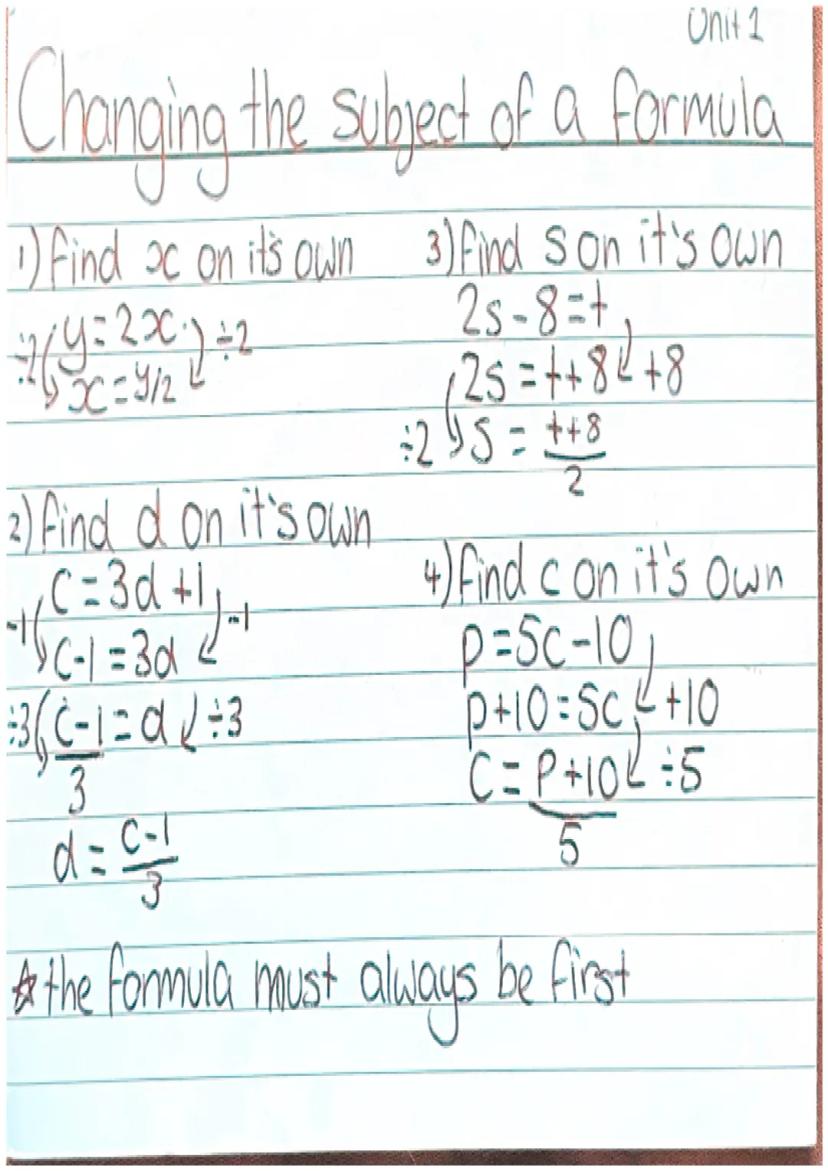 Unit 1
Changing the subject of a formula
1) find x on it's own
÷2 y = 2x ÷2
x = y/2
2) find d on it's own
-1 c = 3d + 1 -1
c - 1 = 3d
÷3 c - 1 = d ÷3
3
d = c - 1
3
3) find s on it's own
2s - 8 = t
2s = t + 8 +8
÷2 s = t + 8
2
4) find c on it's own
p = 5c - 10
p + 10 = 5c +10
c = p + 10 ÷5
5
☆ the formula must always be first